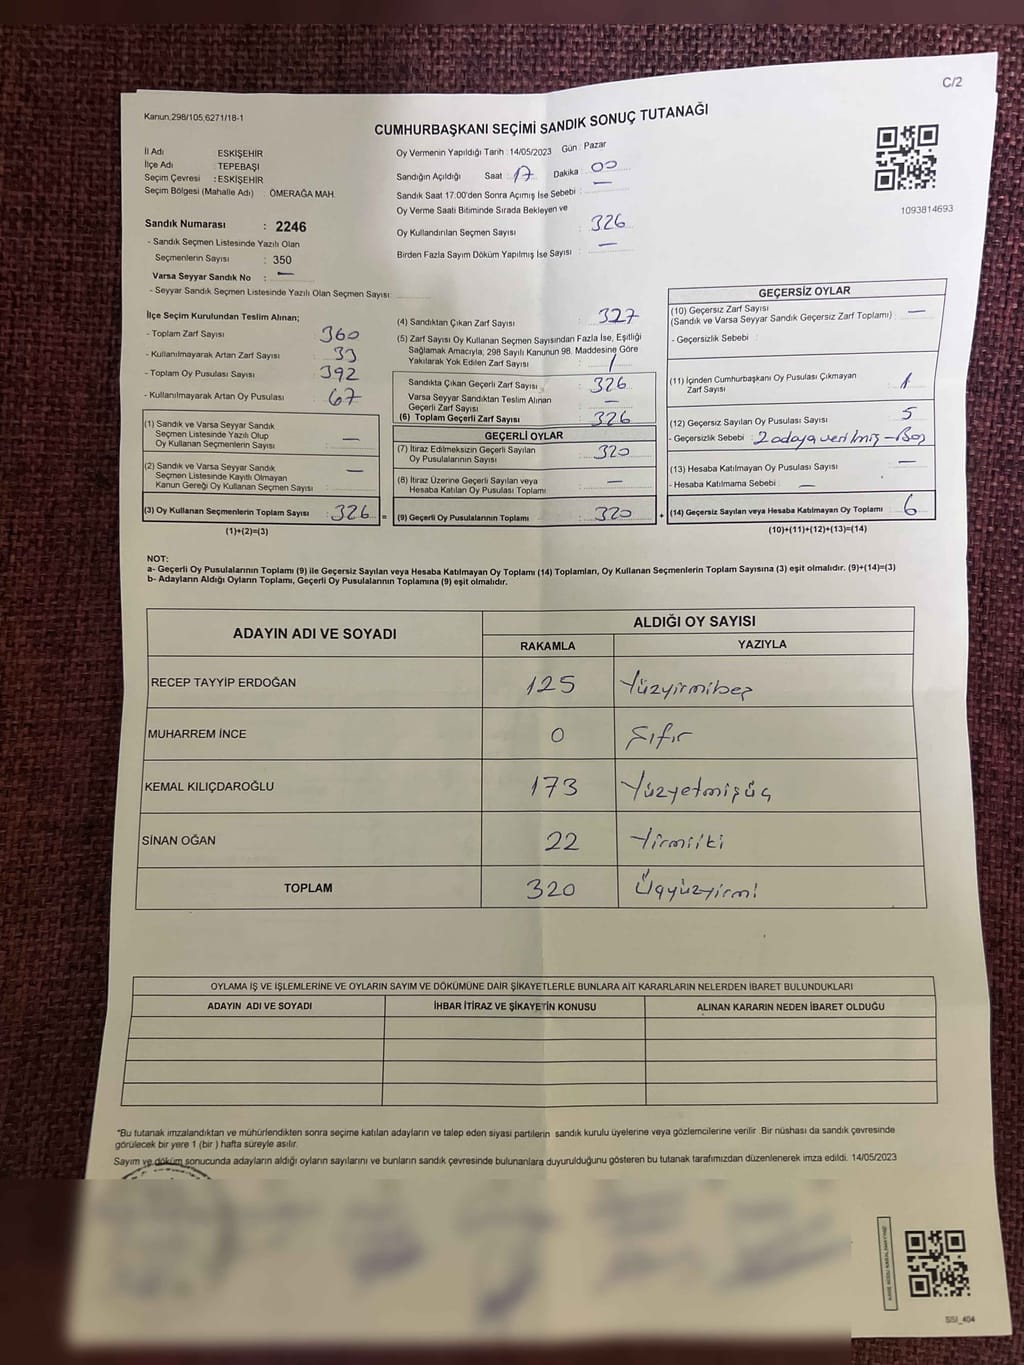 C/2
Kanun,298/105,6271/18-1
CUMHURBAŞKANI SEÇİMİ SANDIK SONUÇ TUTANAĞI
İl Adı ESKİŞEHİR
İlçe Adı : TEPEBAŞI
Seçim Çevresi : ESKİŞEHİR
Seçim Bölgesi (Mahalle Adı) ÖMERAĞA MAH.
Sandık Numarası : 2246
- Sandık Seçmen Listesinde Yazılı Olan
Seçmenlerin Sayısı : 350
Varsa Seyyar Sandık No : —
- Seyyar Sandık Seçmen Listesinde Yazılı Olan Seçmen Sayısı:
Oy Vermenin Yapıldığı Tarih : 14/05/2023 Gün : Pazar
Sandığın Açıldığı Saat : 17 Dakika : 00
Sandık Saat 17.00'den Sonra Açımış İse Sebebi : —
Oy Verme Saati Bitiminde Sırada Bekleyen ve
Oy Kullandırılan Seçmen Sayısı : 326
Birden Fazla Sayım Döküm Yapılmış İse Sayısı : —
1093814693
İlçe Seçim Kurulundan Teslim Alınan;
- Toplam Zarf Sayısı : 360
- Kullanılmayarak Artan Zarf Sayısı : 33
- Toplam Oy Pusulası Sayısı : 392
- Kullanılmayarak Artan Oy Pusulası : 67
(1) Sandık ve Varsa Seyyar Sandık
Seçmen Listesinde Yazılı Olup
Oy Kullanan Seçmenlerin Sayısı : —
(2) Sandık ve Varsa Seyyar Sandık
Seçmen Listesinde Kayıtlı Olmayan
Kanun Gereği Oy Kullanan Seçmen Sayısı : —
(3) Oy Kullanan Seçmenlerin Toplam Sayısı : 326
(1)+(2)=(3)
=
(4) Sandıktan Çıkan Zarf Sayısı : 327
(5) Zarf Sayısı Oy Kullanan Seçmen Sayısından Fazla İse, Eşitliği
Sağlamak Amacıyla; 298 Sayılı Kanunun 98. Maddesine Göre
Yakılarak Yok Edilen Zarf Sayısı : 1
Sandıkta Çıkan Geçerli Zarf Sayısı : 326
Varsa Seyyar Sandıktan Teslim Alınan
Geçerli Zarf Sayısı : —
(6) Toplam Geçerli Zarf Sayısı : 326
GEÇERLİ OYLAR
(7) İtiraz Edilmeksizin Geçerli Sayılan
Oy Pusulalarının Sayısı : 320
(8) İtiraz Üzerine Geçerli Sayılan veya
Hesaba Katılan Oy Pusulası Toplamı : —
(9) Geçerli Oy Pusulalarının Toplamı : 320
+
GEÇERSİZ OYLAR
(10) Geçersiz Zarf Sayısı
(Sandık ve Varsa Seyyar Sandık Geçersiz Zarf Toplamı) : —
- Geçersizlik Sebebi :
(11) İçinden Cumhurbaşkanı Oy Pusulası Çıkmayan
Zarf Sayısı : 1
(12) Geçersiz Sayılan Oy Pusulası Sayısı : 5
- Geçersizlik Sebebi : 2 adaya verilmiş - Boş
(13) Hesaba Katılmayan Oy Pusulası Sayısı : —
- Hesaba Katılmama Sebebi : —
(14) Geçersiz Sayılan veya Hesaba Katılmayan Oy Toplamı : 6
(10)+(11)+(12)+(13)=(14)
NOT:
a- Geçerli Oy Pusulalarının Toplamı (9) ile Geçersiz Sayılan veya Hesaba Katılmayan Oy Toplamı (14) Toplamları, Oy Kullanan Seçmenlerin Toplam Sayısına (3) eşit olmalıdır. (9)+(14)=(3)
b- Adayların Aldığı Oyların Toplamı, Geçerli Oy Pusulalarının Toplamına (9) eşit olmalıdır.
ADAYIN ADI VE SOYADI
ALDIĞI OY SAYISI
RAKAMLA YAZIYLA
RECEP TAYYİP ERDOĞAN 125 Yüzyirmibeş
MUHARREM İNCE 0 Sıfır
KEMAL KILIÇDAROĞLU 173 Yüzyetmişüç
SİNAN OĞAN 22 Yirmiiki
TOPLAM 320 Üçyüzyirmi
OYLAMA İŞ VE İŞLEMLERİNE VE OYLARIN SAYIM VE DÖKÜMÜNE DAİR ŞİKAYETLERLE BUNLARA AİT KARARLARIN NELERDEN İBARET BULUNDUKLARI
ADAYIN ADI VE SOYADI İHBAR İTİRAZ VE ŞİKAYETİN KONUSU ALINAN KARARIN NEDEN İBARET OLDUĞU
*Bu tutanak imzalandıktan ve mühürlendikten sonra seçime katılan adayların ve talep eden siyasi partilerin sandık kurulu üyelerine veya gözlemcilerine verilir. Bir nüshası da sandık çevresinde
görülecek bir yere 1 (bir) hafta süreyle asılır.
Sayım ve döküm sonucunda adayların aldığı oyların sayılarını ve bunların sandık çevresinde bulunanlara duyurulduğunu gösteren bu tutanak tarafımızdan düzenlenerek imza edildi. 14/05/2023
SSI_404